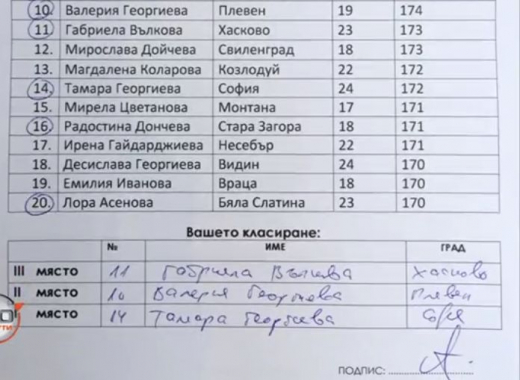 10. Валерия Георгиева Плевен 19 174
11. Габриела Вълкова Хасково 23 173
12. Мирослава Дойчева Свиленград 18 173
13. Магдалена Коларова Козлодуй 22 172
14. Тамара Георгиева София 24 172
15. Мирела Цветанова Монтана 17 171
16. Радостина Дончева Стара Загора 18 171
17. Ирена Гайдарджиева Несебър 22 171
18. Десислава Георгиева Видин 24 170
19. Емилия Иванова Враца 18 170
20. Лора Асенова Бяла Слатина 23 170
Вашето класиране:
№ ИМЕ ГРАД
III място 11 Габриела Вълкова Хасково
II място 10 Валерия Георгиева Плевен
място 14 Тамара Георгиева Соф
ПОДПИС: